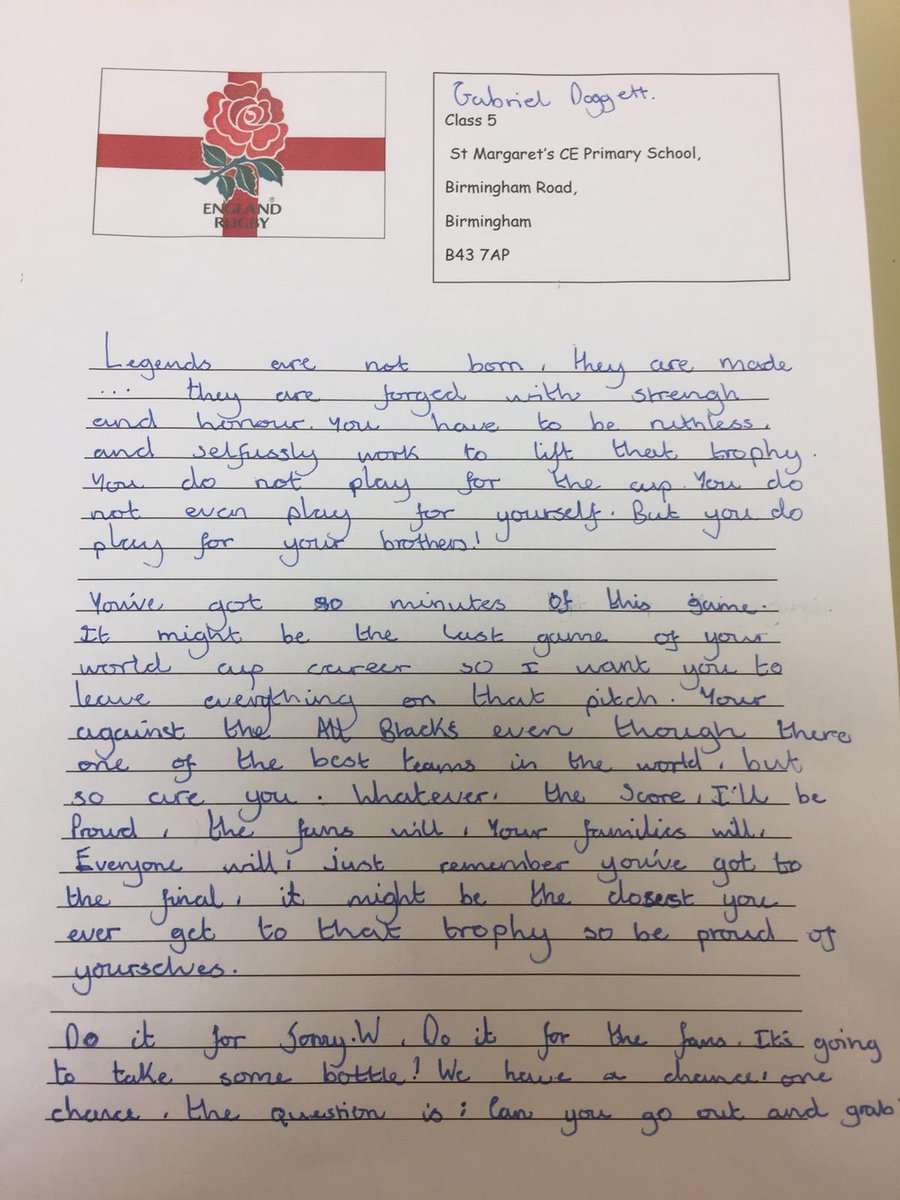 ENGLAND
RUGBY
Gabriel Doggett.
Class 5
St Margaret's CE Primary School,
Birmingham Road,
Birmingham
B43 7AP
Legends are not born, they are made
... they are forged with strengh
and honour. You have to be ruthless,
and selfussly work to lift that trophy.
You do not play for the cup. You do
not even play for yourself. But you do
play for your brothers!
You've got 80 minutes of this game.
It might be the last game of your
world cup career so I want you to
leave everything on that pitch. Your
against the All Blacks even though there
one of the best teams in the world, but
so are you. Whatever, the score, I'll be
Proud, the fans will, Your families will,
Everyone will; just remember you've got to
the final, it might be the closest you
ever get to that trophy so be proud of
yourselves.
Do it for Jonny.W, Do it for the fans. It's going
to take some bottle! We have a chance, one
chance, the question is; Can you go out and grab